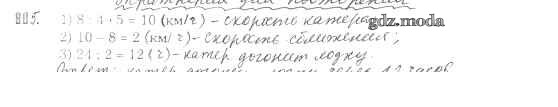 Упражнения для повторения
805. 1) 8 : 4 · 5 = 10 (км/ч) – скорость катера
gdz.moda
2) 10 – 8 = 2 (км/ч) – скорость сближения;
3) 24 : 2 = 12 (ч) – катер догонит лодку.
Ответ: катер догонит лодку через 12 часов